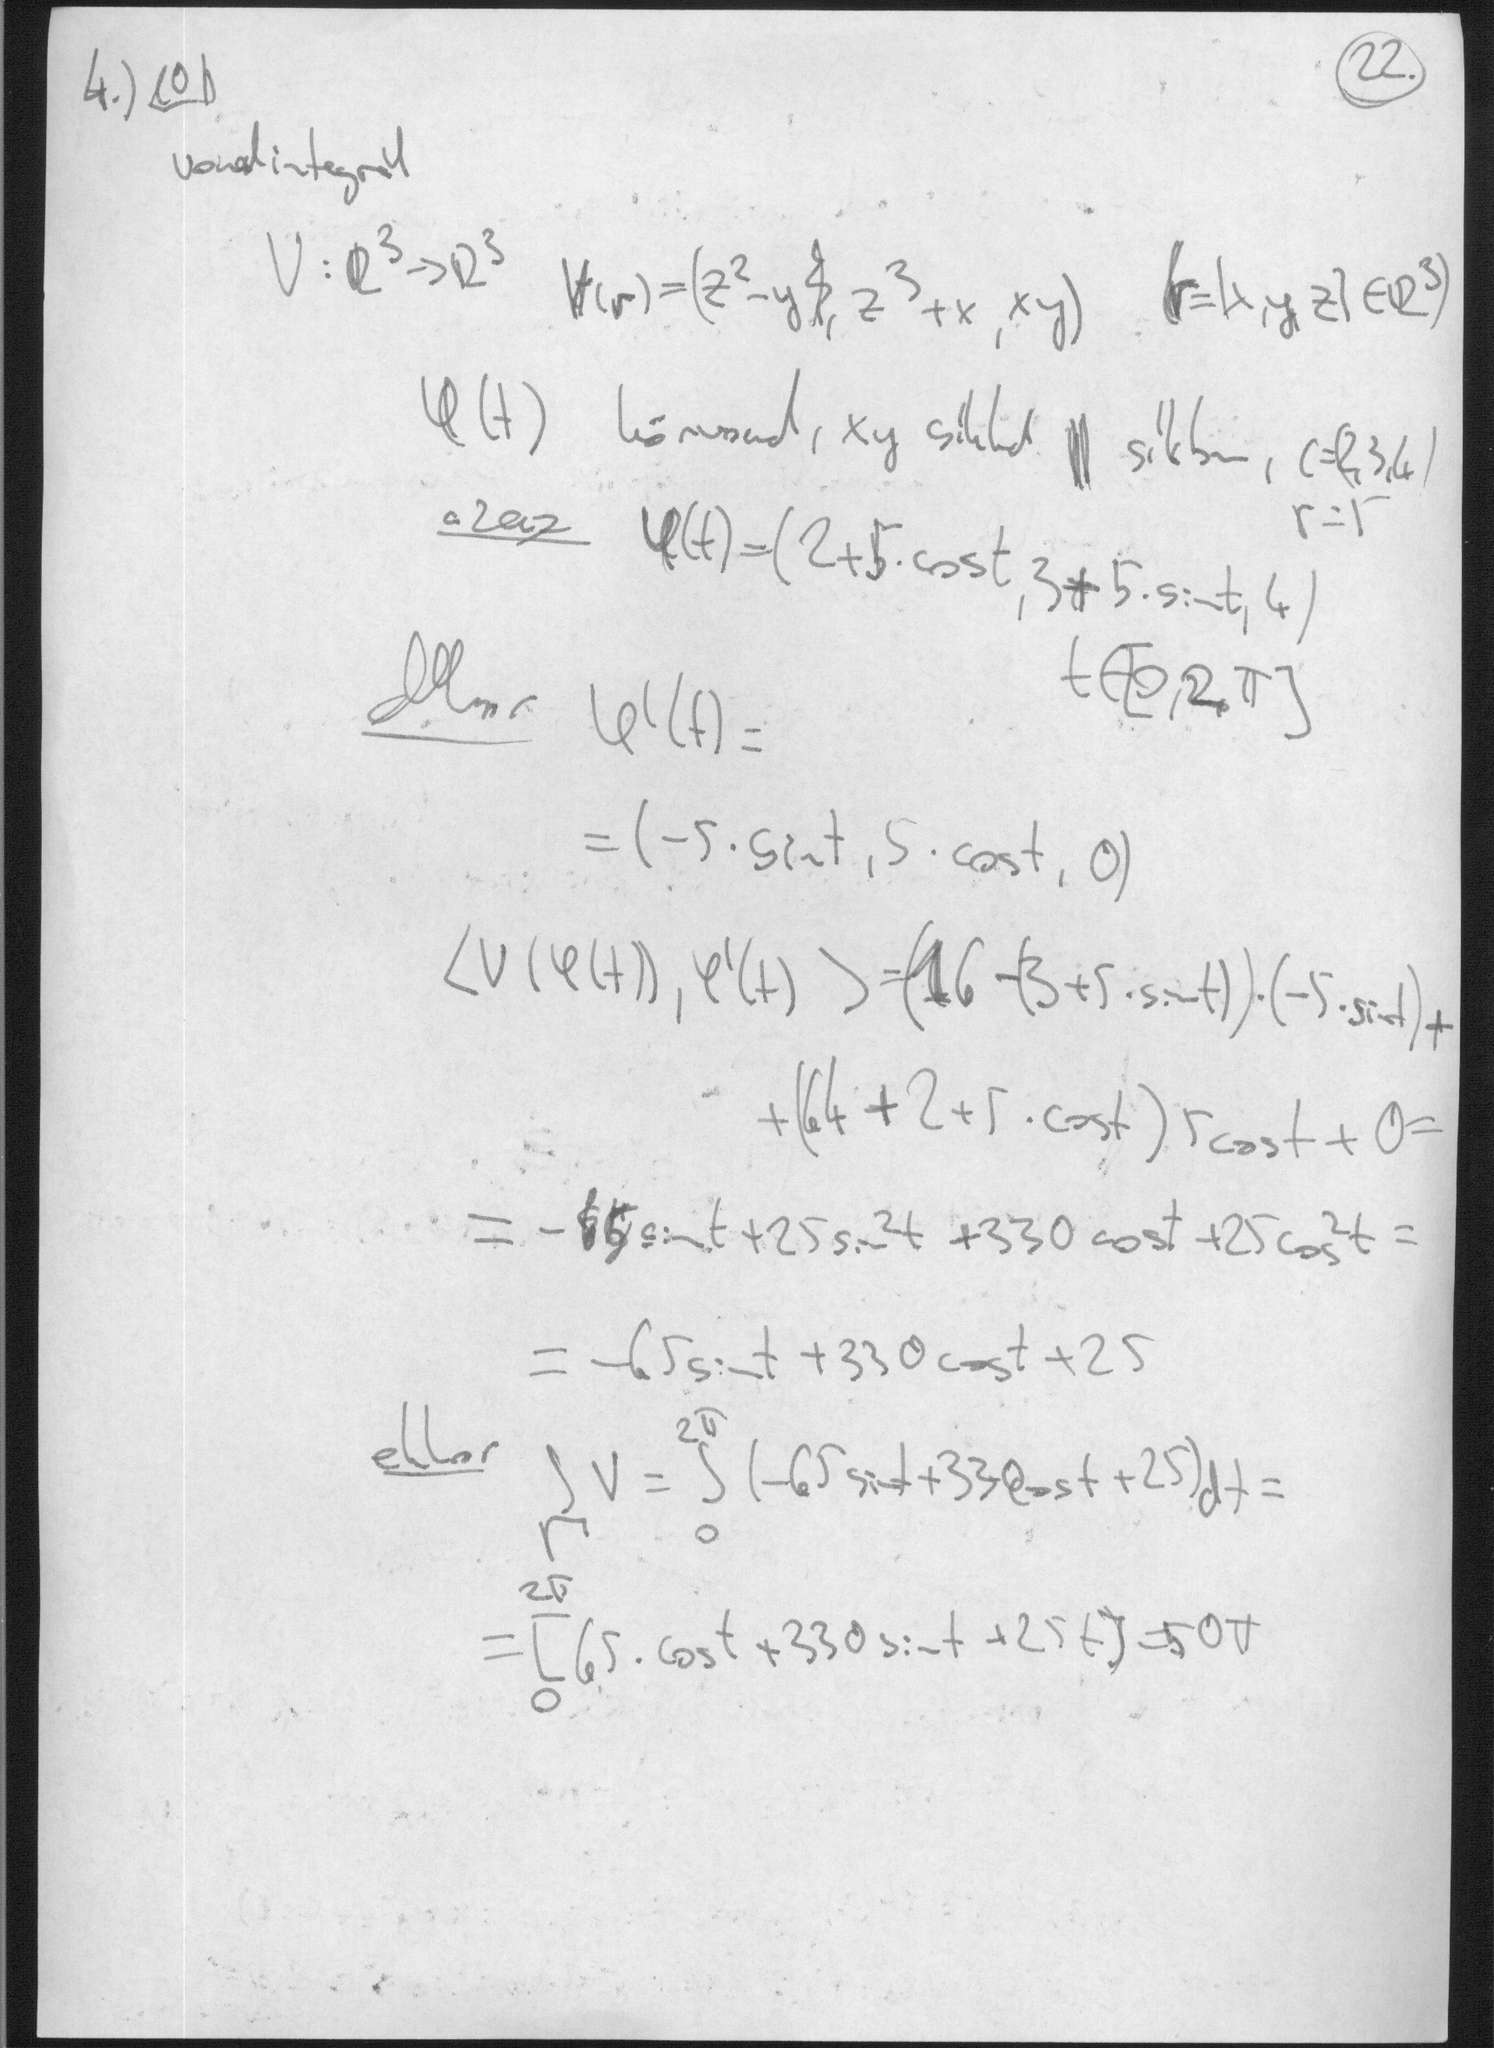 22.
4.)
vonalintegrál
V: ℝ³→ℝ³ V(r)=(z²-y, z³+x, xy) (r=(x,y,z)∈ℝ³)
φ(t) körvonal, xy síkkal || síkban, C=(2,3,4)
r=5
azaz φ(t)=(2+5·cost, 3+5·sint, 4)
t∈[0,2π]
Ekkor φ'(t)=
=(-5·sint, 5·cost, 0)
<V(φ(t)), φ'(t)>=(16-(3+5·sint))·(-5·sint)+
+(64+2+5·cost)5cost+0=
=-65sint+25sin²t+330cost+25cos²t=
=-65sint+330cost+25
ekkor ∫_Γ V = ∫_0^{2π} (-65sint+330cost+25)dt=
=[65·cost+330sint+25t]_0^{2π}=50π